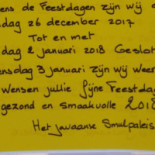 ens de Feestdagen zijn wij
dag 26 december 2017
Tot en met
dag 2 januari 2018 Geslot
nsdag 3 januari zijn wij weer
wensen jullie fijne Feestda
gezond en smaakvolle 2018
Het javaanse Smulpaleis